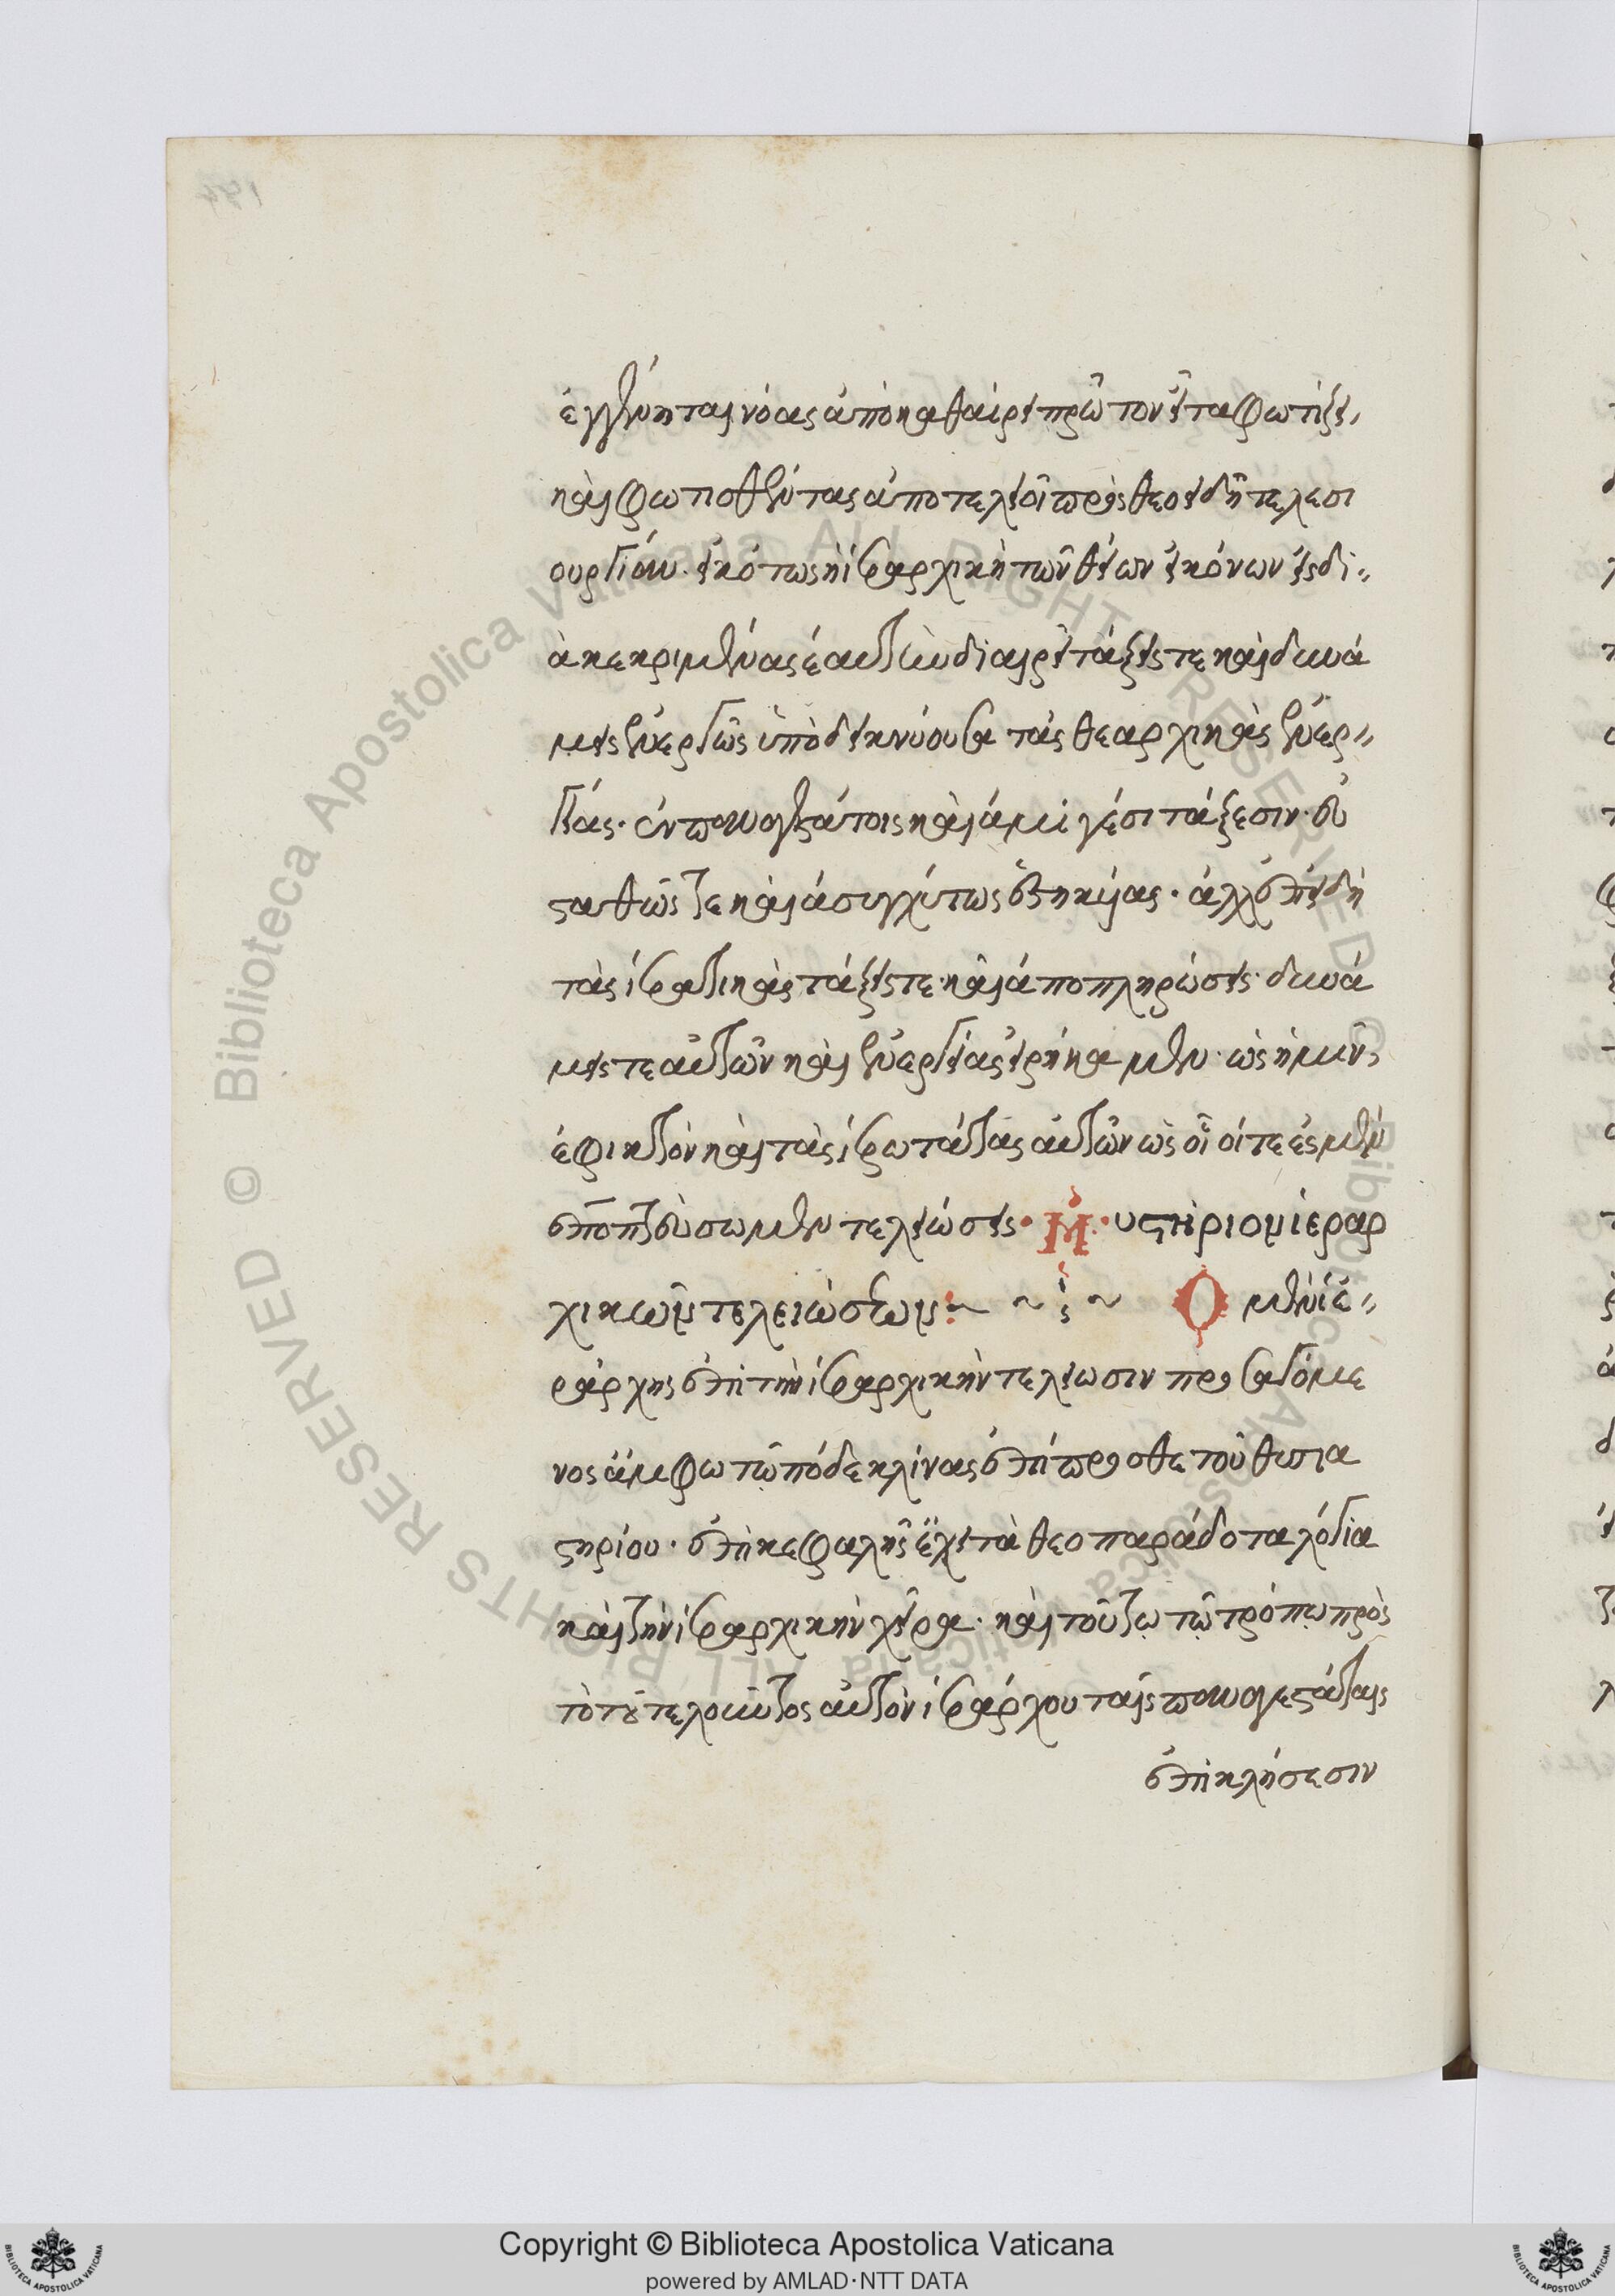 ἐγγένηται νόας ἀποκαθαίρει πρῶτον εἶτα φωτίζει,
καὶ φωτισθέντας ἀποτελεῖ πρὸς θεοειδῆ τελεσι
ουργίαν. εἰκότως ἡ ἱεραρχικὴ τῶν θείων εἰκόνων εἰς δι-
ακεκριμένας ἑαυτὴν διαιρεῖ τάξεις τε καὶ δυνά
μεις ἐναργῶς ὑποδεικνύουσα τὰς θεαρχικὰς ἐνερ-
γείας. ἐν παναγεστάτοις καὶ ἀμιγέσι τάξεσιν εὐ
σταθῶς τε καὶ ἀσυγχύτως ἑστηκυίας. ἀλλ' ἐπειδὴ
τὰς ἱερατικὰς τάξεις τε καὶ ἀποπληρώσεις. δυνά
μεις τε αὐτῶν καὶ ἐνεργείας εἰρήκαμεν. ὡς ἡμῖν
ἐφικτὸν καὶ τὰς ἱερωτάτας αὐτῶν ὡς οἷοί τε ἐσμὲν
ἐποπτεύσωμεν τελειώσεις. Μ υστήριον ἱεραρ
χικῶν τελειώσεων: Ὁ μὲν ἱε-
ράρχης ἐπὶ τὴν ἱεραρχικὴν τελείωσιν προσαγόμε
νος ἄμφω τὼ πόδε κλίνας ἐπίπροσθε τοῦ θυσια
στηρίου. ἐπὶ κεφαλῆς ἔχει τὰ θεοπαράδοτα λόγια
καὶ τὴν ἱεραρχικὴν χεῖρα. καὶ τούτῳ τῷ τρόπῳ πρὸς
τοῦ τελοῦντος αὐτὸν ἱεράρχου ταῖς παναγεστάταις
ἐπικλήσεσιν
Copyright © Biblioteca Apostolica Vaticana
powered by AMLAD·NTT DATA